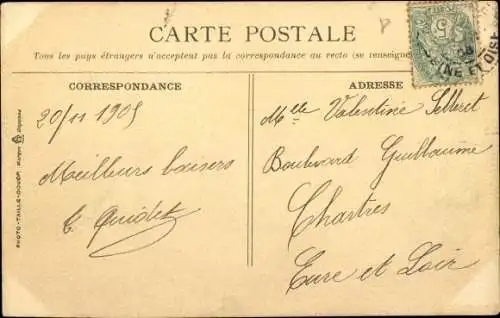 CARTE POSTALE
Tous les pays étrangers n'acceptent pas la correspondance au recto (se renseigne
CORRESPONDANCE
ADRESSE
20/11 1905
Meilleurs baisers
Melle Valentine Selleret
Boulevard Guillaume
Chartres
Eure et Loir
PHOTO-TAILLE-DOUCE Marque Déposées
5
INE ET OISE